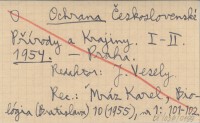 Ochrana Československé
Přírody a Krajiny. I-II.
1954. Praha.
Redaktor: J. Veselý
Rec.: Mráz Karel, Bio-
lógia (Bratislava) 10(1955), nº 1: 101-102.